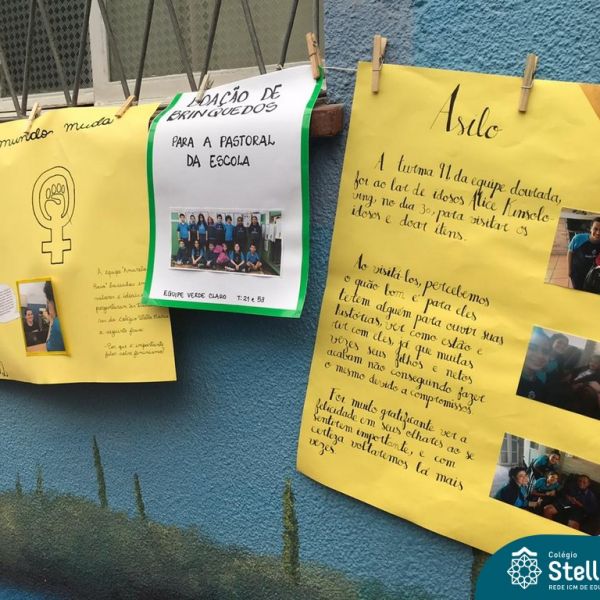 mundo muda
DOAÇÃO DE
BRINQUEDOS
PARA A PASTORAL
DA ESCOLA
EQUIPE VERDE CLARO T: 21 e 53
A equipe Amarela
do Colégio Stella Maris
a seguinte frase:
-Por que é importante
falar sobre feminismo?
Asilo
A turma 91 da equipe dourada,
foi ao lar de idosos Alice Kinsolo-
ving, no dia 30, para visitar os
idosos e doar itens.
Ao visitá-los, percebemos
o quão bom é para eles
terem alguém para ouvir suas
histórias, ver como estão e
ter com eles já que muitas
vezes seus filhos e netos
acabam não conseguindo fazer
o mesmo devido a compromissos.
Foi muito gratificante ver a
felicidade em seus olhares ao se
sentirem importante, e com
certeza voltaremos lá mais
vezes
Colégio
Stell
REDE ICM DE EDU